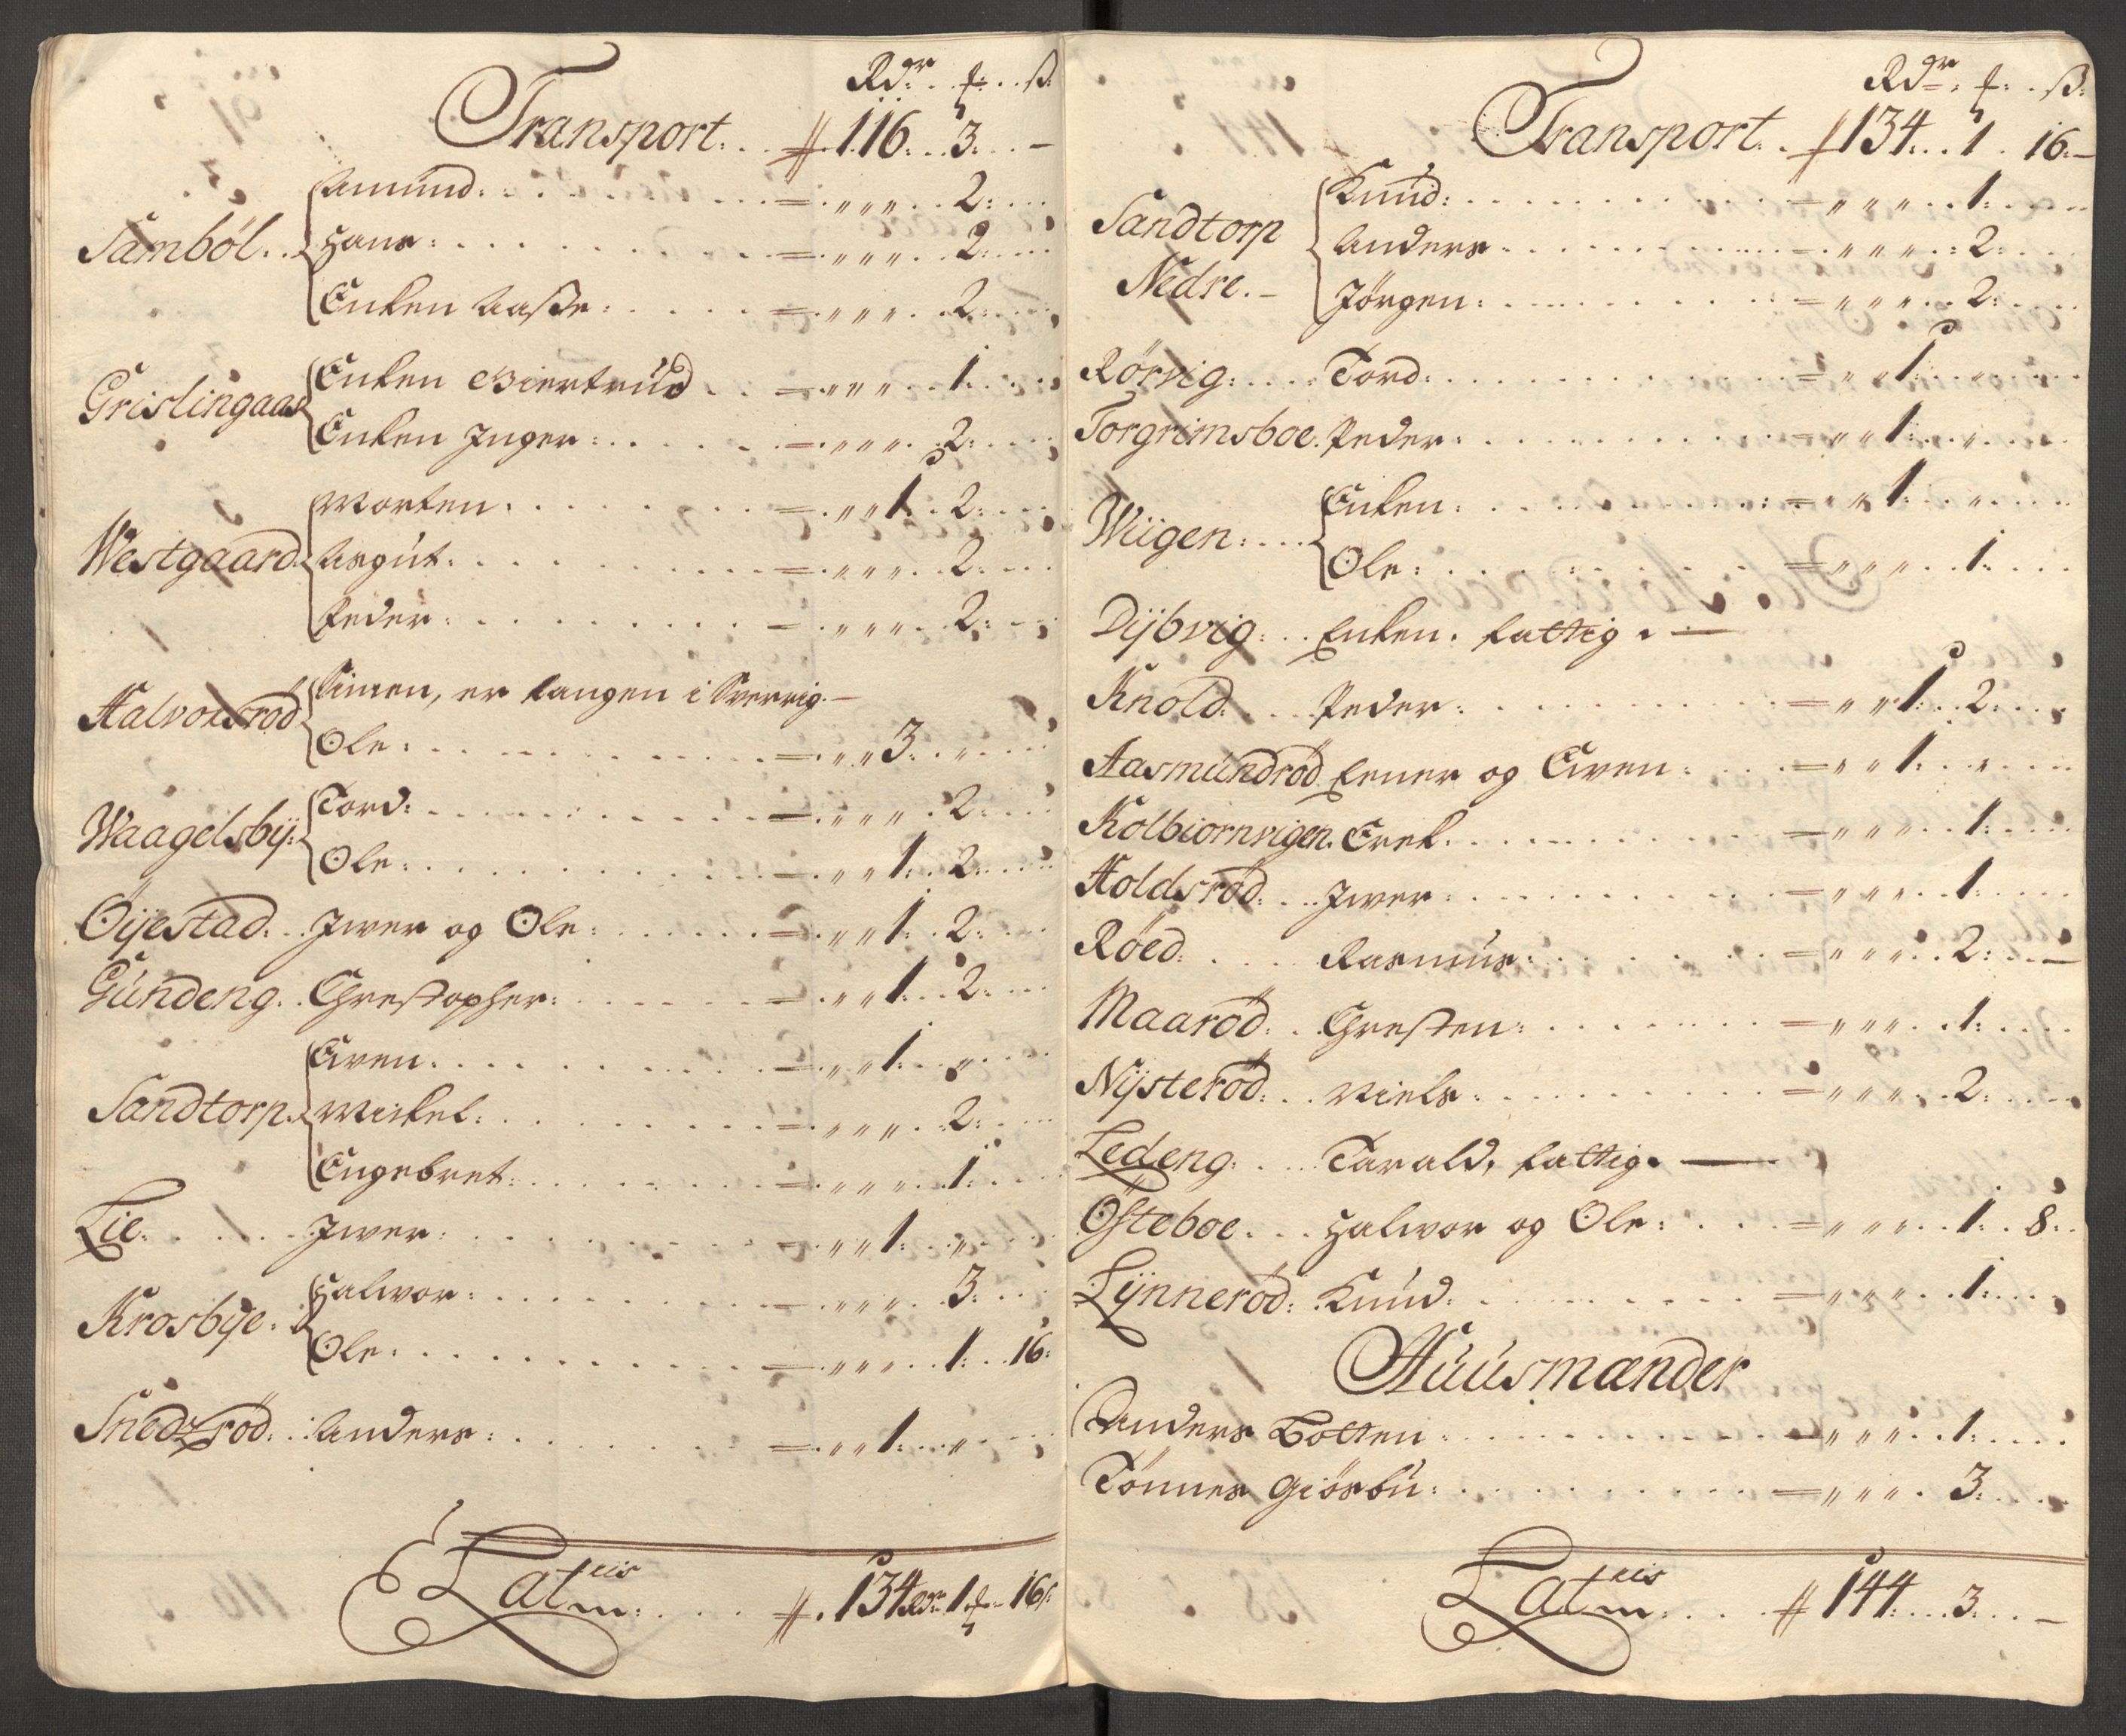 Rdr. ƒ. ß.
Transport. . # 116. 3. –
Samböl. . Amund. . . = „ „ „ 2.
Hans. . . = „ „ „ 2.
Enken Aaße. . . = „ „ „ 2.
Grislingaas Enken Giertrud . . = „ „ „ 1.
Enken Inger. . . = „ „ „ 2.
Westgaard. Morten. . . = „ „ 1. 2.
Asgut. . . = „ „ „ 2.
Peder. . . = „ „ „ 2.
Halvorsröd Simen, er fangen i Sverrig. –
Ole. . . = „ „ 3. „
Waagelsbÿ: Tord. . . = „ „ „ 2.
Ole. . . = „ „ 1. 2.
Öÿestad. . Iwer og Ole. . . = „ „ 1. 2.
Gundeng. . Chrestopher. . . = „ „ 1. 2.
Sandtorp. Even. . . = „ „ 1. „
Mickel. . . = „ „ „ 2.
Engebret. . . = „ „ „ 1.
Lie. . . Iwer. . . = „ „ 1. „
Krosbÿe. Halwor. . . = „ „ „ 3.
Ole. . . = „ „ „ 1. 16.
Snedzröd. . Anders. . . = „ „ 1. „
Lateriis. . . #. 134 Rdr. 1 ƒ 16 ß
Rdr. ƒ. ß.
Transport. . # 134. . 1. 16. –
Sandtorp Nedre. – Knud. . . = „ „ „ 1.
Anders. . . = „ „ „ 2.
Jörgen. . . = „ „ „ 2.
Rörvig. . . Tord. . . = „ „ 1.
Torgrimsboe. Peder. . . = „ „ 1. „
Wiigen. . . Enken. . . = „ „ 1. „
Ole. . . = „ „ „ 1.
Dÿbvig. . . Enken. fattig. —
Knold. . . Peder. . . = „ „ 1. 2.
Aasmundröd. Ener og Even. . . = „ „ 1. „
Kolbiornvigen. Erek. . . = „ „ „ 1.
Holdsröd. . Iwer. . . = „ „ „ 1.
Röed. . . Rasmus. . . = „ „ „ 2. –
Maaröd. . Chresten. . . = „ „ „ 1.
Nÿsteröd. . Niels. . . = „ „ „ 2.
Ledeng. . . Tarald, fattig. —
Östeboe. . . Halwor og Ole. . . = „ „ „ 1. 8.
Lÿnneröd. Knud. . . = „ „ „ 1.
Huusmænder
Anders Botten . . . = „ „ „ 1.
Tönnes Giösbu. . . = „ „ „ 3.
Lateriis. . . # 144. . . 3. . –